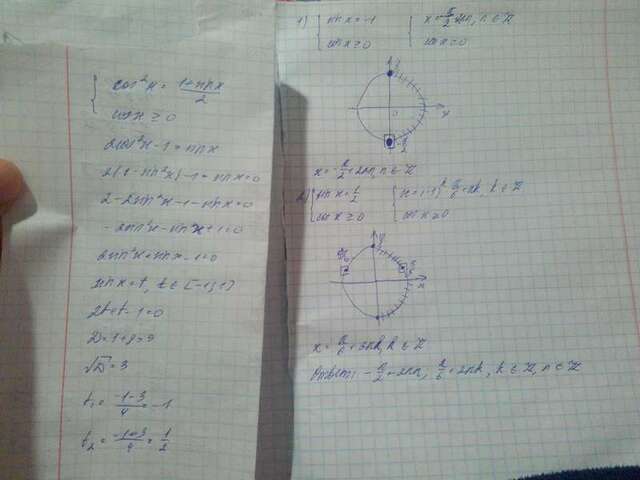 { cos²x = (1+sin x)/2
cos x ≥ 0
2cos²x - 1 = sin x
2(1 - sin²x) - 1 - sin x = 0
2 - 2sin²x - 1 - sin x = 0
- 2sin²x - sin x + 1 = 0
2sin²x + sin x - 1 = 0
sin x = t, t ∈ [-1; 1]
2t² + t - 1 = 0
D = 1 + 8 = 9
√D = 3
t₁ = (-1-3)/4 = -1
t₂ = (-1+3)/4 = 1/2
1) { sin x = -1 { x = -π/2 + 2πn, n ∈ Z
cos x ≥ 0 cos x ≥ 0
y
0 x
-π/2
x = -π/2 + 2πn, n ∈ Z
2) { sin x = 1/2 { x = (-1)ᵏ π/6 + πk, k ∈ Z
cos x ≥ 0 cos x ≥ 0
y
x
x = π/6 + 2πk, k ∈ Z
Ответ: -π/2 + 2πn, π/6 + 2πk, k ∈ Z, n ∈ Z